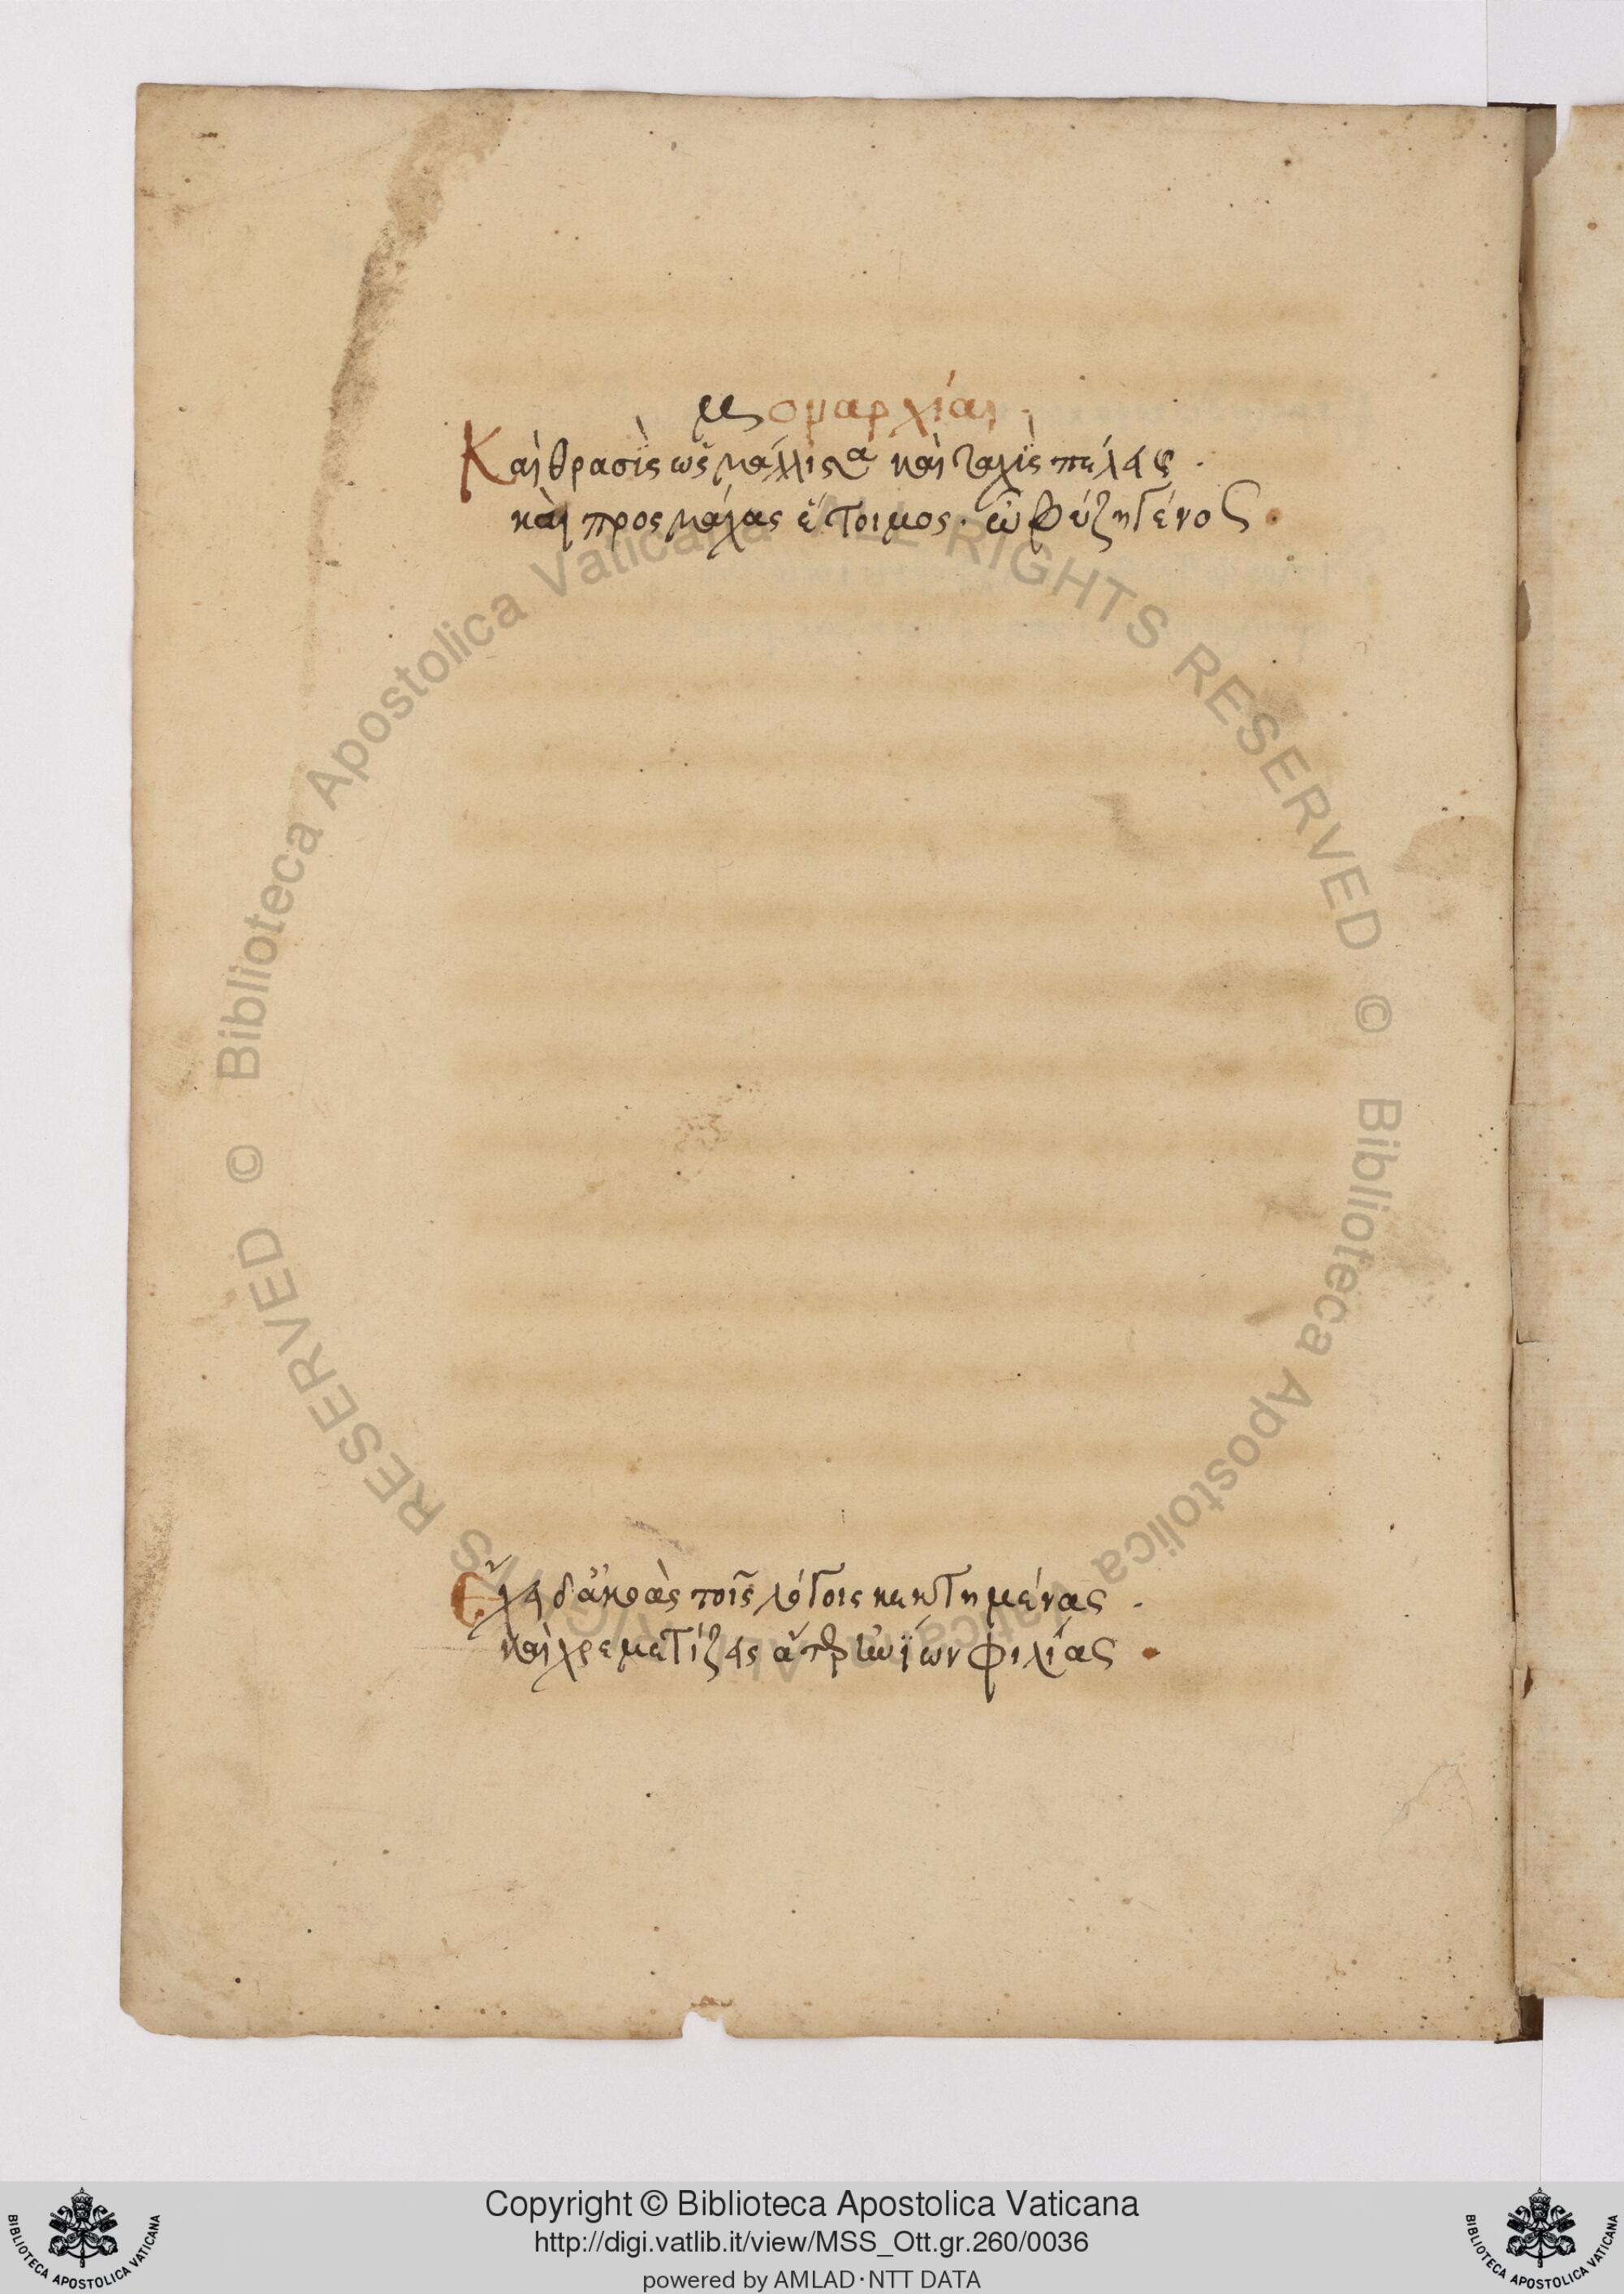 ομαρχίαι
Καὶ θρασὺς ὡς μάλλιστα καὶ ταχὺς πέλεις.
καὶ προς μάχας ἕτοιμος. ὦ βύζη γένος.
Ἔχει δ' ἀκοὰς τοῖς λόγοις κεκτημένας.
καὶ χρεματίζεις φιλίας.
© Biblioteca Apostolica Vaticana ALL RIGHTS RESERVED © Biblioteca Apostolica Vaticana ALL RIGHTS RESERVED
Copyright © Biblioteca Apostolica Vaticana
http://digi.vatlib.it/view/MSS_Ott.gr.260/0036
powered by AMLAD·NTT DATA
BIBLIOTECA APOSTOLICA VATICANA
BIBLIOTECA APOSTOLICA VATICANA